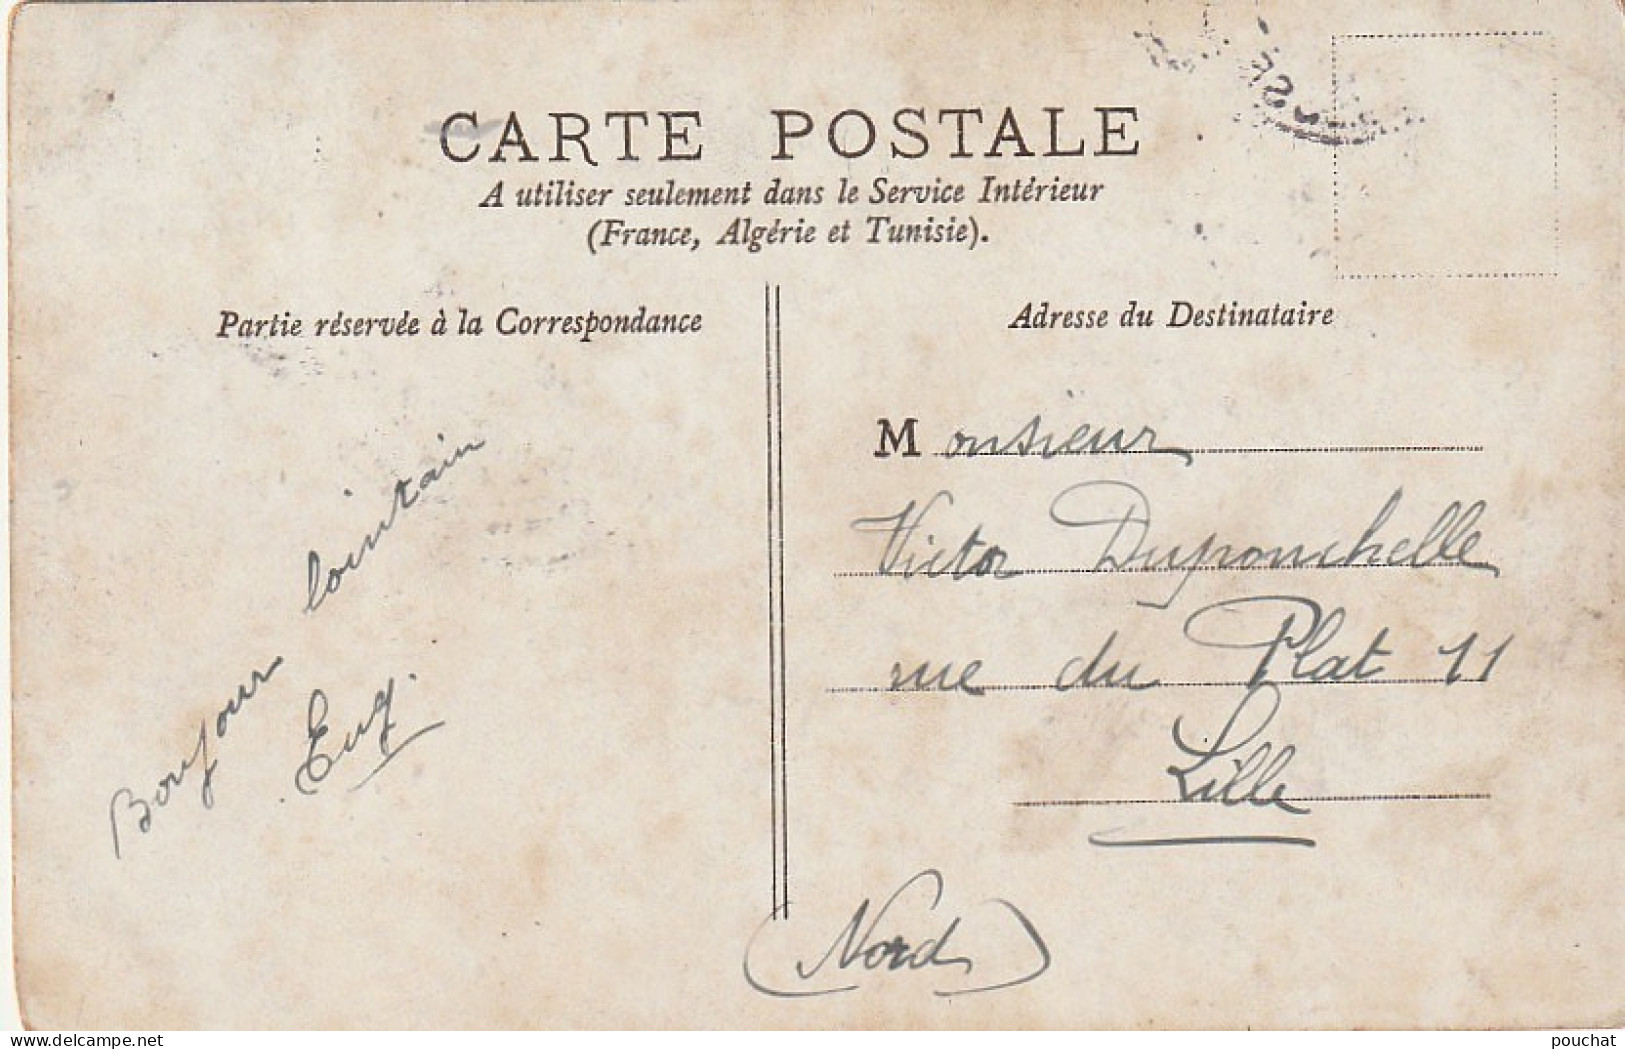 CARTE POSTALE
A utiliser seulement dans le Service Intérieur
(France, Algérie et Tunisie).
Partie réservée à la Correspondance
Adresse du Destinataire
Bonjour lointain
Eug.
Monsieur
Victor Duponchelle
rue du Plat 11
Lille
(Nord)
delcampe.net
pouchat